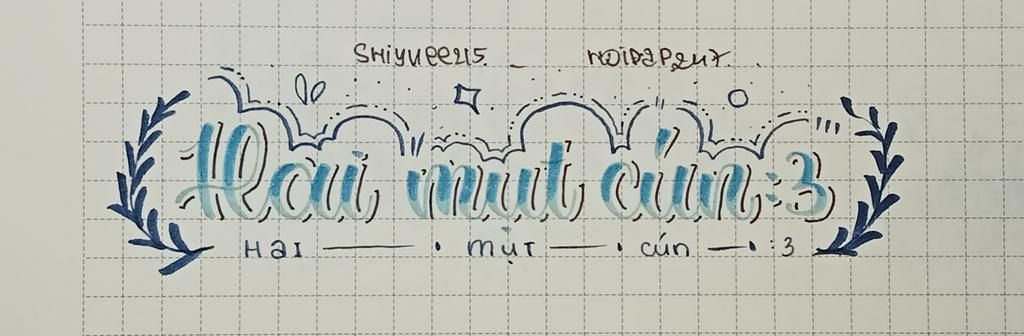 SHiyuee215 _ HOIDaP247.
Hai mụt cún :3
Hai mụt cún :3